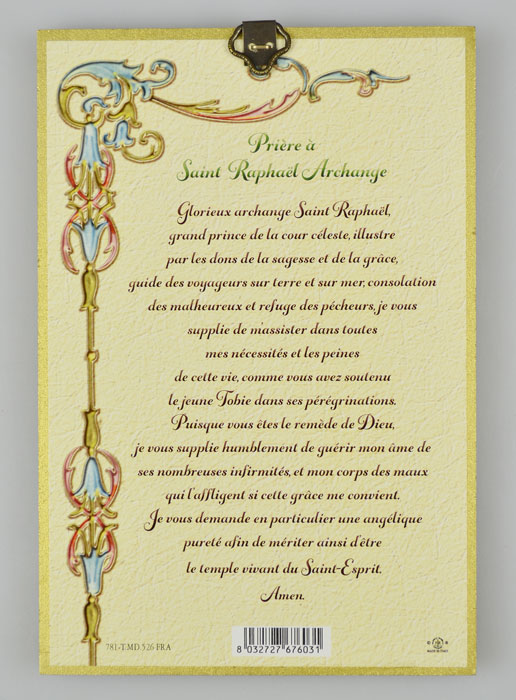 Prière à
Saint Raphaël Archange
Glorieux archange Saint Raphaël,
grand prince de la cour céleste, illustre
par les dons de la sagesse et de la grâce,
guide des voyageurs sur terre et sur mer, consolation
des malheureux et refuge des pécheurs, je vous
supplie de m'assister dans toutes
mes nécessités et les peines
de cette vie, comme vous avez soutenu
le jeune Tobie dans ses pérégrinations.
Puisque vous êtes le remède de Dieu,
je vous supplie humblement de guérir mon âme de
ses nombreuses infirmités, et mon corps des maux
qui l'affligent si cette grâce me convient.
Je vous demande en particulier une angélique
pureté afin de mériter ainsi d'être
le temple vivant du Saint-Esprit.
Amen.
781-T.MD.526 FRA
8 032727 676031